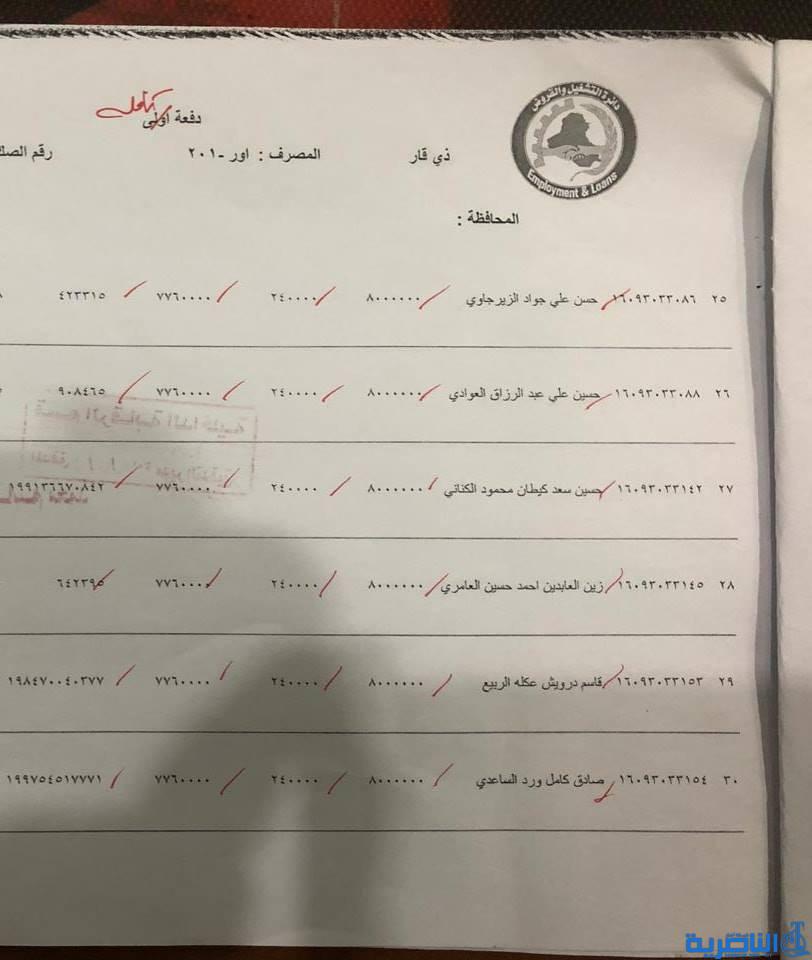 دائرة التشغيل والقروض
Employment & Loans
دفعة اولى
ذي قار المصرف : اور -٢٠١ رقم الصك
المحافظة :
٢٥ ١٦٠٩٣٠٣٣٠٨٦ حسن علي جواد الزيرجاوي ٨٠٠٠٠٠٠ ٢٤٠٠٠٠ ٧٧٦٠٠٠٠ ٤٢٣٣١٥
٢٦ ١٦٠٩٣٠٣٣٠٨٨ حسين علي عبد الرزاق العوادي ٨٠٠٠٠٠٠ ٢٤٠٠٠٠ ٧٧٦٠٠٠٠ ٩٠٨٤٦٥
٢٧ ١٦٠٩٣٠٣٣١٤٢ حسين سعد كيطان محمود الكناني ٨٠٠٠٠٠٠ ٢٤٠٠٠٠ ٧٧٦٠٠٠٠ ١٩٩١٣٦٦٧٠٨٤٢
٢٨ ١٦٠٩٣٠٣٣١٤٥ زين العابدين احمد حسين العامري ٨٠٠٠٠٠٠ ٢٤٠٠٠٠ ٧٧٦٠٠٠٠ ٦٤٢٣٩٥
٢٩ ١٦٠٩٣٠٣٣١٥٣ قاسم درويش عكله الربيع ٨٠٠٠٠٠٠ ٢٤٠٠٠٠ ٧٧٦٠٠٠٠ ١٩٨٤٧٠٠٤٠٣٧٧
٣٠ ١٦٠٩٣٠٣٣١٥٤ صادق كامل ورد الساعدي ٨٠٠٠٠٠٠ ٢٤٠٠٠٠ ٧٧٦٠٠٠٠ ١٩٩٧٥٤٥١٧٧٧١
قسم الرقابة الداخلية
الناصرية